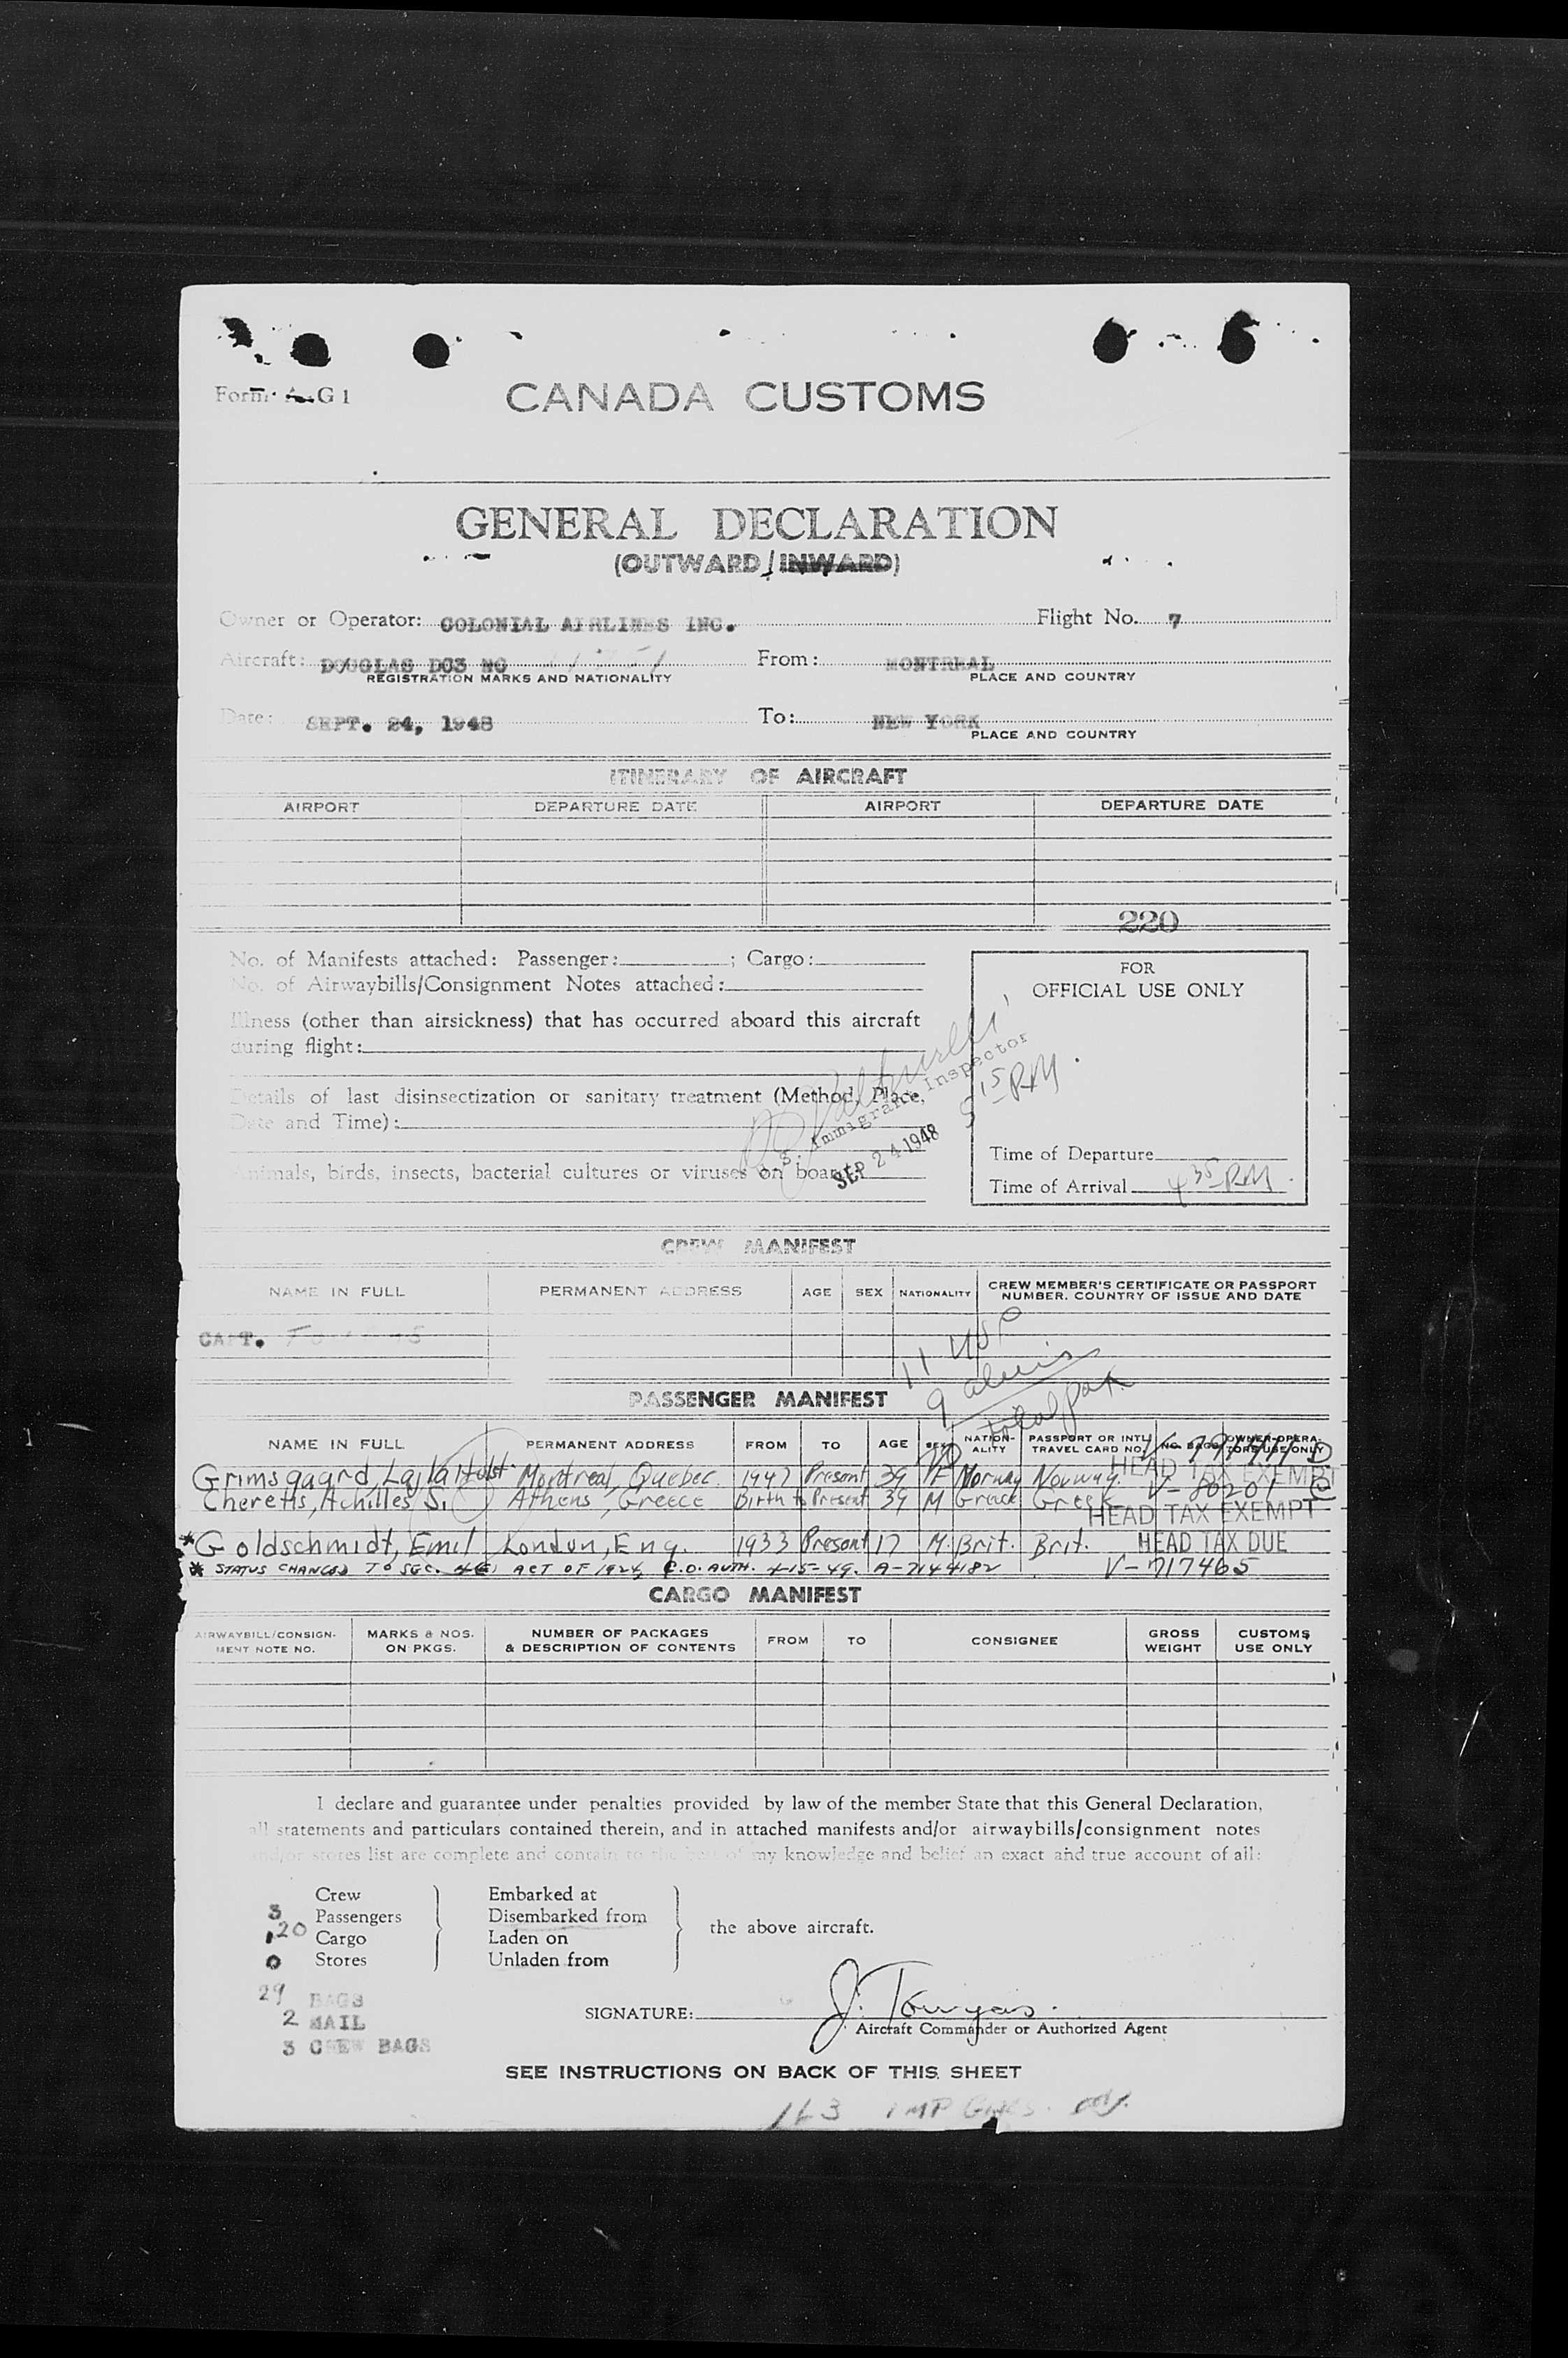 Form A-G 1
CANADA CUSTOMS
GENERAL DECLARATION
(OUTWARD/INWARD)
Owner or Operator: COLONIAL AIRLINES INC. Flight No. 7
Aircraft: DOUGLAS DC3 NC From: MONTREAL
REGISTRATION MARKS AND NATIONALITY PLACE AND COUNTRY
Date: SEPT. 24, 1948 To: NEW YORK
PLACE AND COUNTRY
ITINERARY OF AIRCRAFT
AIRPORT DEPARTURE DATE AIRPORT DEPARTURE DATE
220
No. of Manifests attached: Passenger: ; Cargo:
No. of Airwaybills/Consignment Notes attached:
Illness (other than airsickness) that has occurred aboard this aircraft
during flight:
Details of last disinsectization or sanitary treatment (Method, Place,
Date and Time):
Animals, birds, insects, bacterial cultures or viruses on board:
U. S. Immigrant Inspector
SEP 24 1948
5 15 PM
FOR
OFFICIAL USE ONLY
Time of Departure
Time of Arrival 4 35 PM.
CREW MANIFEST
NAME IN FULL PERMANENT ADDRESS AGE SEX NATIONALITY CREW MEMBER'S CERTIFICATE OR PASSPORT
NUMBER. COUNTRY OF ISSUE AND DATE
CAPT.
11 USC
9 aliens
20 total pax
PASSENGER MANIFEST
NAME IN FULL PERMANENT ADDRESS FROM TO AGE SEX NATION-
ALITY PASSPORT OR INTL
TRAVEL CARD NO. NO. BAGS OWNER-OPERA-
TORS USE ONLY
Grimsgaard, Lajla Holst. Montreal, Quebec. 1947 Present 39 F Norway Norway. HEAD TAX EXEMPT
Cheretis, Achilles S. Athens, Greece Birth to Present 39 M Greece Greek V-80201
HEAD TAX EXEMPT
*Goldschmidt, Emil London, Eng. 1933 Present 17 M. Brit. Brit. HEAD TAX DUE
* STATUS CHANGED TO SEC. 4(E) ACT OF 1924, C.O. AUTH. 4-15-49. A-7144182 V-717465
CARGO MANIFEST
AIRWAYBILL/CONSIGN-
MENT NOTE NO. MARKS & NOS.
ON PKGS. NUMBER OF PACKAGES
& DESCRIPTION OF CONTENTS FROM TO CONSIGNEE GROSS
WEIGHT CUSTOMS
USE ONLY
I declare and guarantee under penalties provided by law of the member State that this General Declaration,
all statements and particulars contained therein, and in attached manifests and/or airwaybills/consignment notes
and/or stores list are complete and contain to the best of my knowledge and belief an exact and true account of all:
3 Crew Embarked at
20 Passengers Disembarked from the above aircraft.
1 Cargo Laden on
0 Stores Unladen from
29 BAGS
2 MAIL
3 CREW BAGS
SIGNATURE:
Aircraft Commander or Authorized Agent
SEE INSTRUCTIONS ON BACK OF THIS SHEET